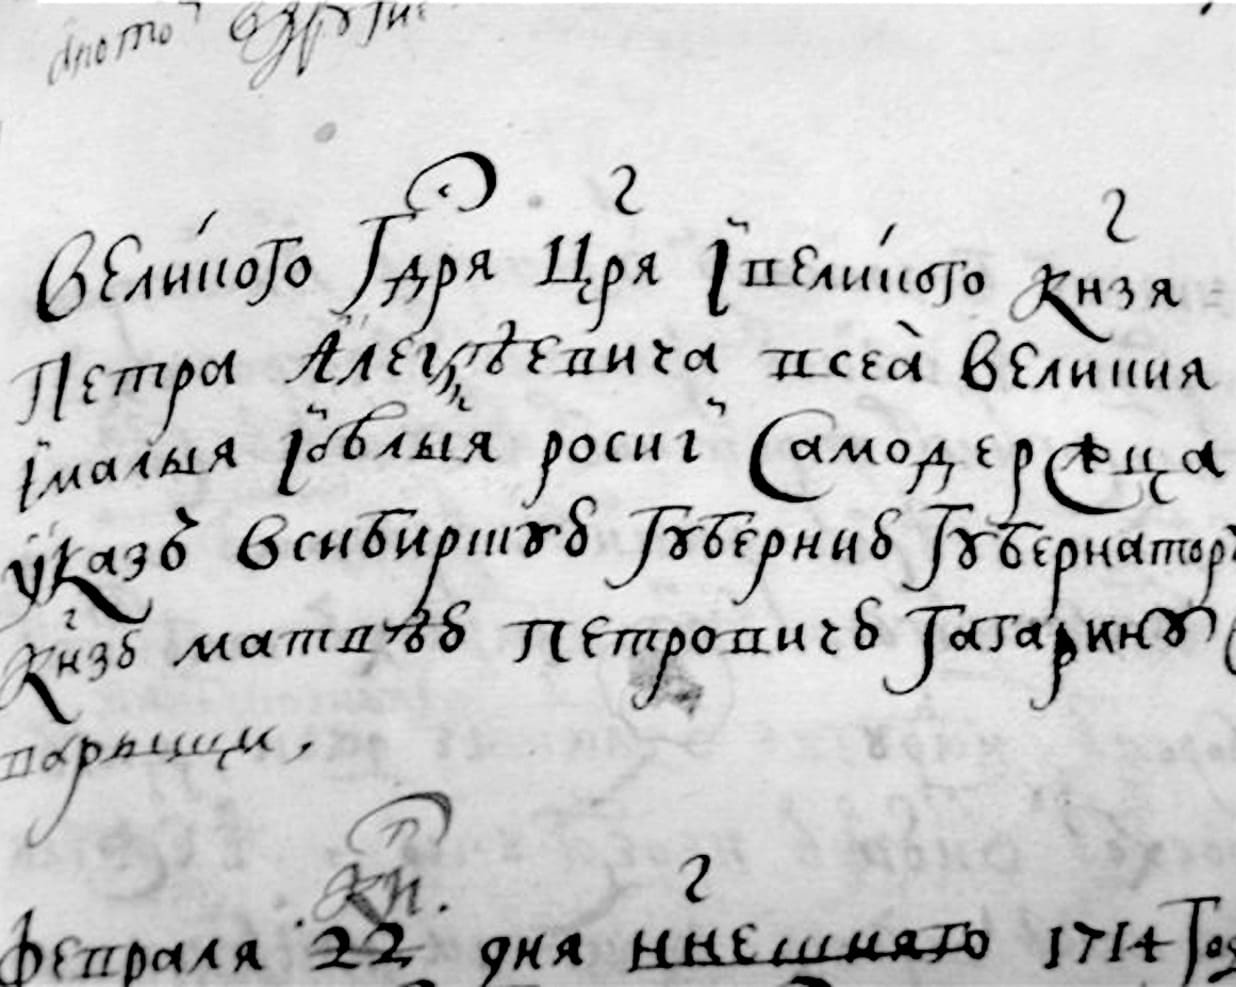 Великого Гдря Цря і великого Кнзя
Петра Алеѯѣевича всеа великия
і малыя і белыя росиі Самодержца
указъ в сибирскую губернию губернатору
Кнзю матвѣю Петровичю Гагарину
Февраля 22 дня ннешнято 1714 Год